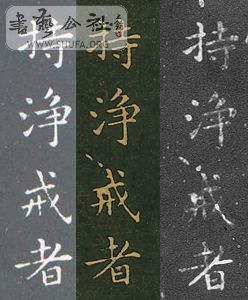 書藝公社
WWW.SHUFA.ORG
持淨戒者
持淨戒者
持淨戒者